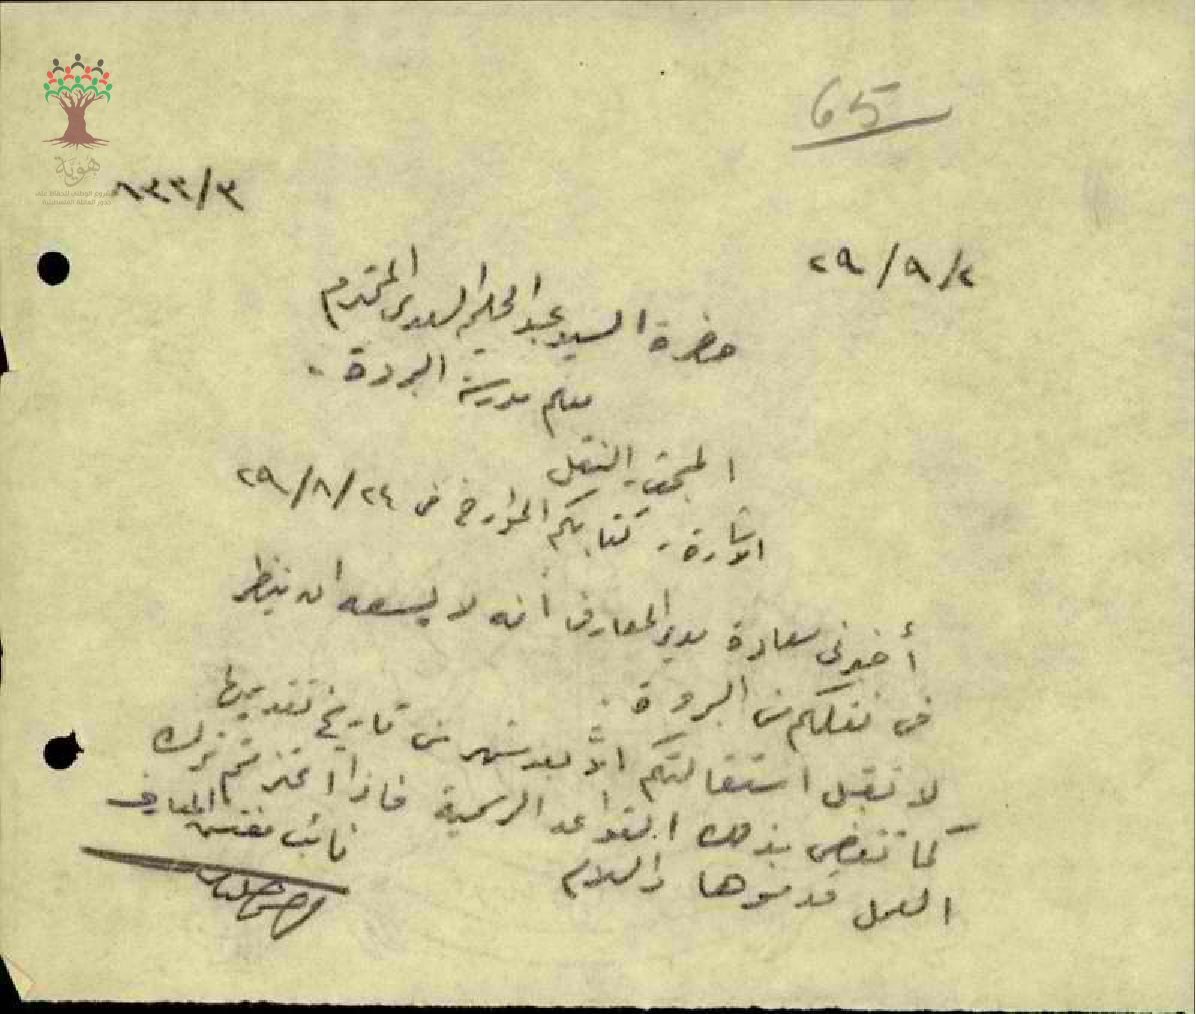 65
هوية
٨٣٣/٣
٢٩/٩/٢
حضرة السيد عبد الحليم السعدي المحترم
معلم مدرسة البروة .
المبحث - النقل
الاشارة - كتابكم المؤرخ في ٢٤/٨/٢٩
أخبرني سعادة مدير المعارف أنه لا يسعه ان ينظر
في نقلكم من البروة .
لا تقبل استقالتكم الاّ بعد شهر من تاريخ تقديمها
كما تقضي بذلك القواعد الرسمية فاذا اعتزمتم ترك
العمل قدموها والسلام
نائب مفتش المعارف